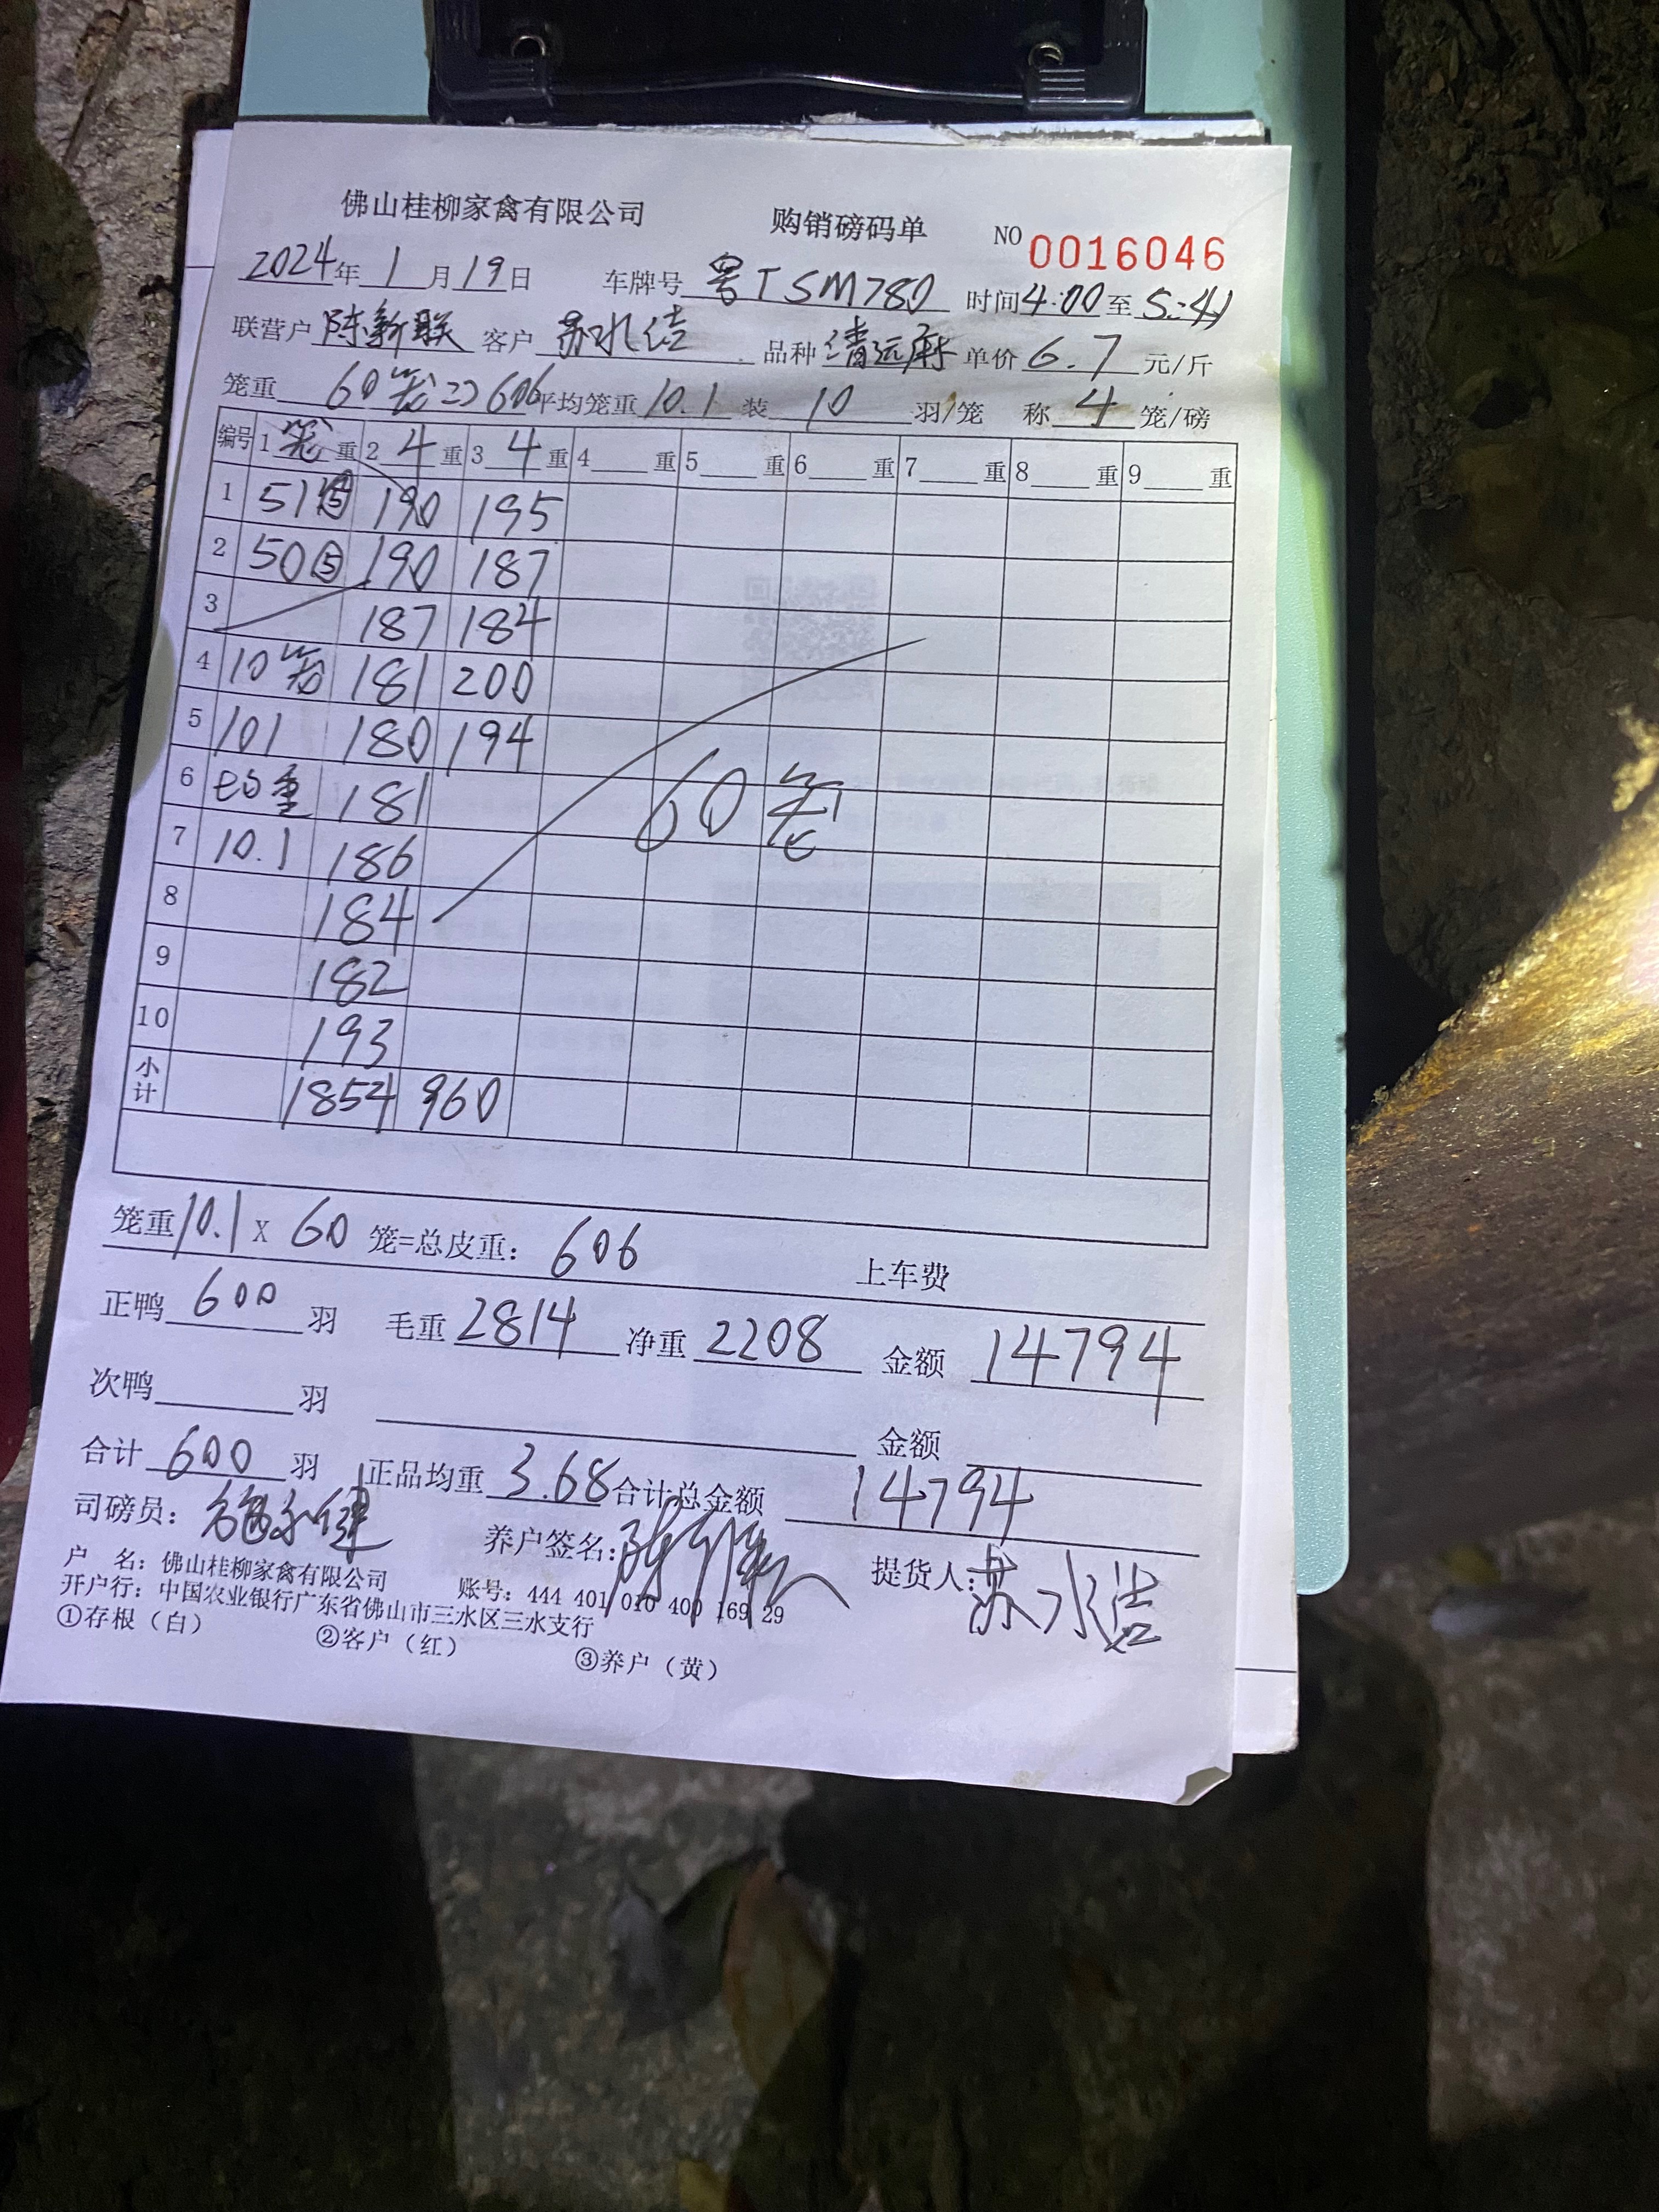 佛山桂柳家禽有限公司 购销磅码单 NO 0016046
2024年 1 月 19 日 车牌号 粤TSM780 时间 4:00 至 5:41
联营户 陈新联 客户 苏水洁 品种 清远麻 单价 6.7 元/斤
笼重 60笼=606 平均笼重 10.1 装 10 羽/笼 称 4 笼/磅
编号 1 笼 重 2 4 重 3 4 重 4 重 5 重 6 重 7 重 8 重 9 重
1 51⑤ 190 195
2 50⑤ 190 187
3 187 184
4 10笼 181 200
5 101 180 194
6 均重 181 60笼
7 10.1 186
8 184
9 182
10 193
小计 1854 960
笼重 10.1 X 60 笼=总皮重: 606 上车费
正鸭 600 羽 毛重 2814 净重 2208 金额 14794
次鸭 羽 金额
合计 600 羽 正品均重 3.68 合计总金额 14794
司磅员: 养户签名: 提货人: 苏水洁
户 名: 佛山桂柳家禽有限公司 账号: 444 401 010 400 169 29
开户行: 中国农业银行广东省佛山市三水区三水支行
①存根（白） ②客户（红） ③养户（黄）